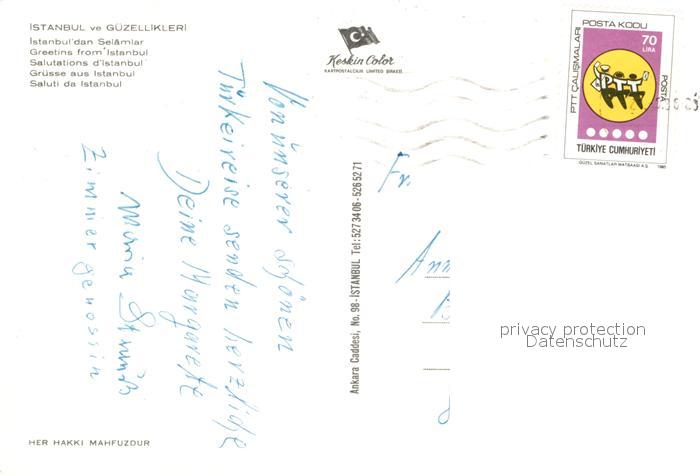 İSTANBUL ve GÜZELLİKLERİ
İstanbul'dan Selâmlar
Greetins from İstanbul
Salutations d'İstanbul
Grüsse aus İstanbul
Saluti da İstanbul
Keskin Color
KARTPOSTALCILIK LİMİTED ŞİRKETİ
POSTA KODU
PTT ÇALIŞMALARI
70
LİRA
PTT
POSTA
TÜRKİYE CUMHURİYETİ
GÜZEL SANATLAR MATBAASI A.Ş. 1985
Von unserer schönen
Türkeireise senden herzliche
Deine Margarete
Maria
Zimmergenossin
Ankara Caddesi, No. 98-İSTANBUL Tel: 5273406-5265271
Fr.
Ann
privacy protection
Datenschutz
HER HAKKI MAHFUZDUR